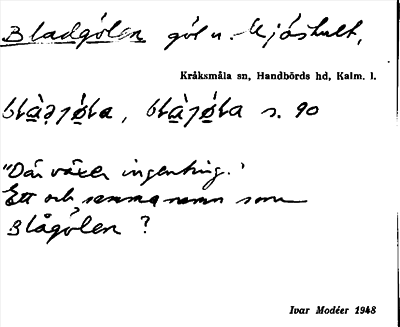 Bladgölen göl u. Mjöshult,
Kråksmåla sn, Handbörds hd, Kalm. l.
s. 90
"Där växer ingenting."
Ett och samma namn som
Blågölen ?
Ivar Modéer 1948